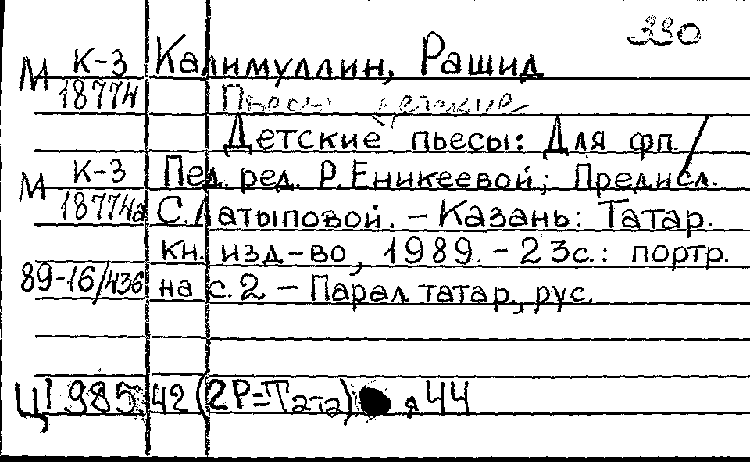 330
М К-3 Калимуллин, Рашид
18774 Пьесы детские
Детские пьесы: Для фп. /
М К-3 Пед. ред. Р. Еникеевой; Предисл.
18774а С. Латыповой. – Казань: Татар.
кн. изд-во, 1989. – 23с.: портр.
89-16/436 на с. 2 – Парал. татар., рус.
Ц1 985.42(2Р=Тата) я44